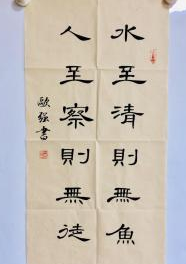 水至清則無魚
人至察則無徒
歐強書